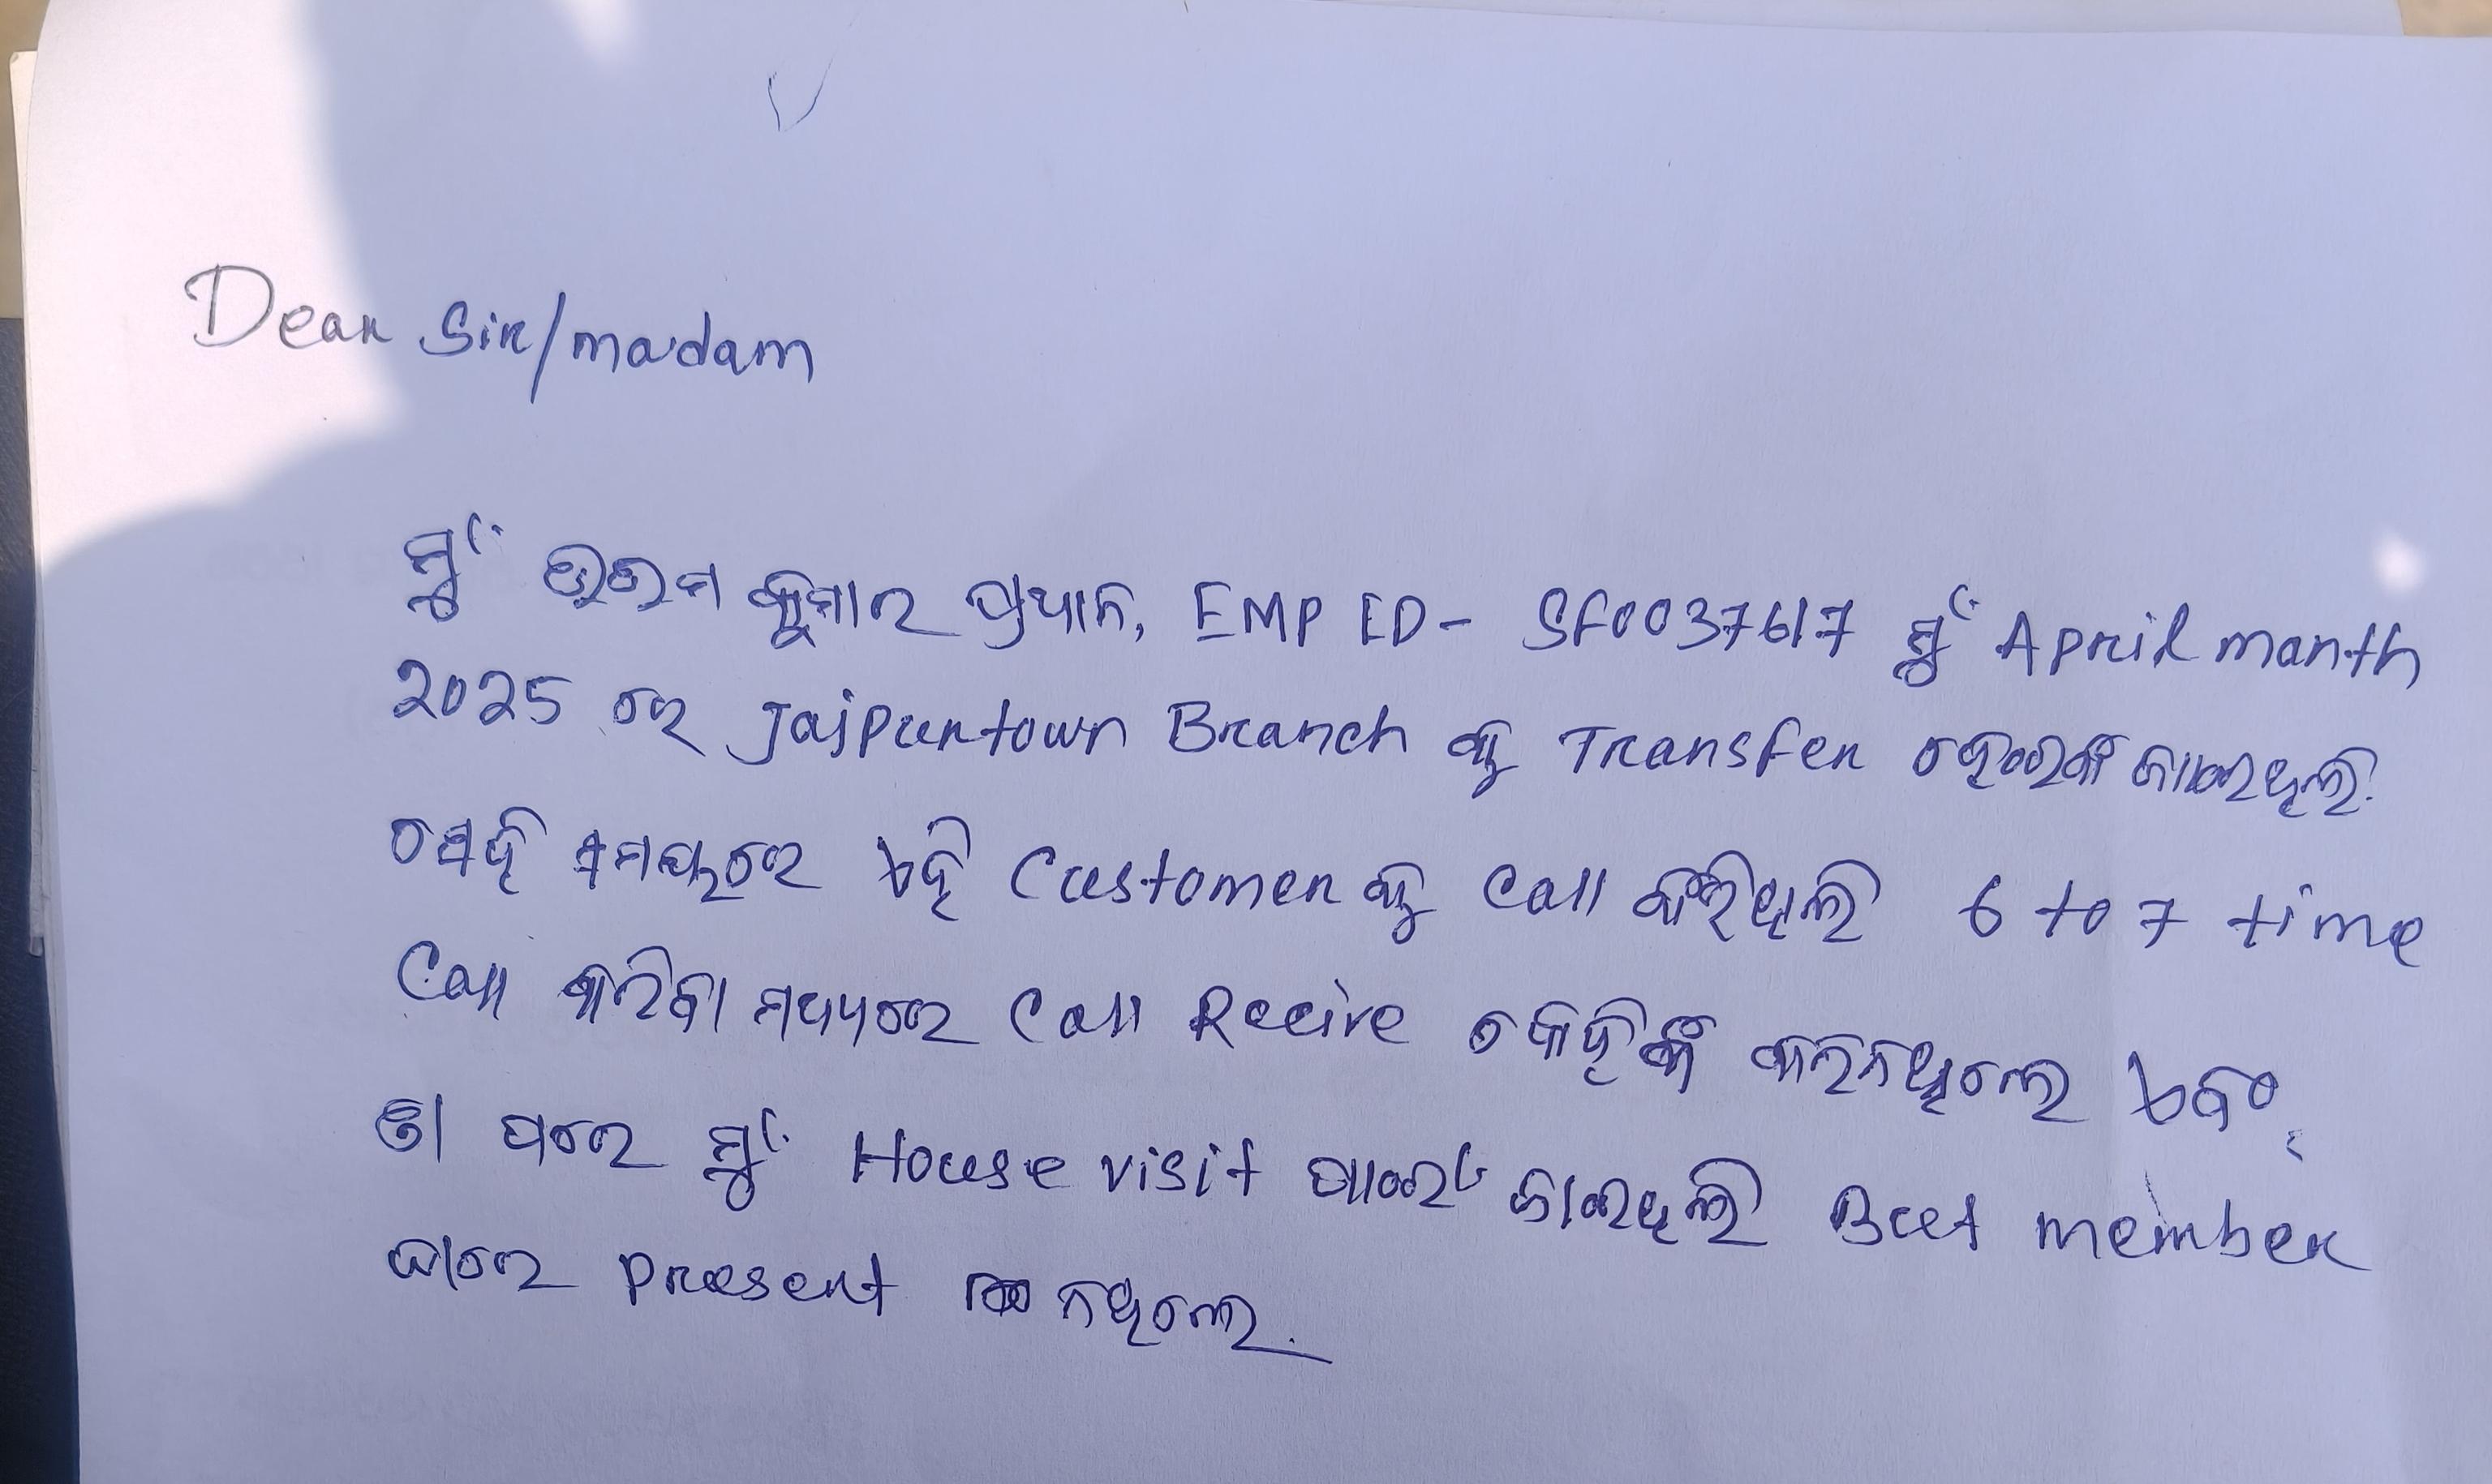 Dear Sir/madam
ମୁଁ ଉତ୍ତମ କୁମାର ପ୍ରଧାନ, EMP ID- SF0037617 ମୁଁ April manth
2025 ରେ Jajpurtown Branch କୁ Transfer ହୋଇକି ଜାଇଥିଲି.
ସେହି ସମୟରେ ଏହି Customer କୁ Call କରିଥିଲି 6 to 7 time
Call କରିବା ମଧ୍ୟରେ Call Recive କେହିକି କରିନଥିଲେ ଏବଂ
ତା ପରେ ମୁଁ House visit ପାଇଁ ଜାଇଥିଲି But member
ଘରେ present ନଥିଲେ.